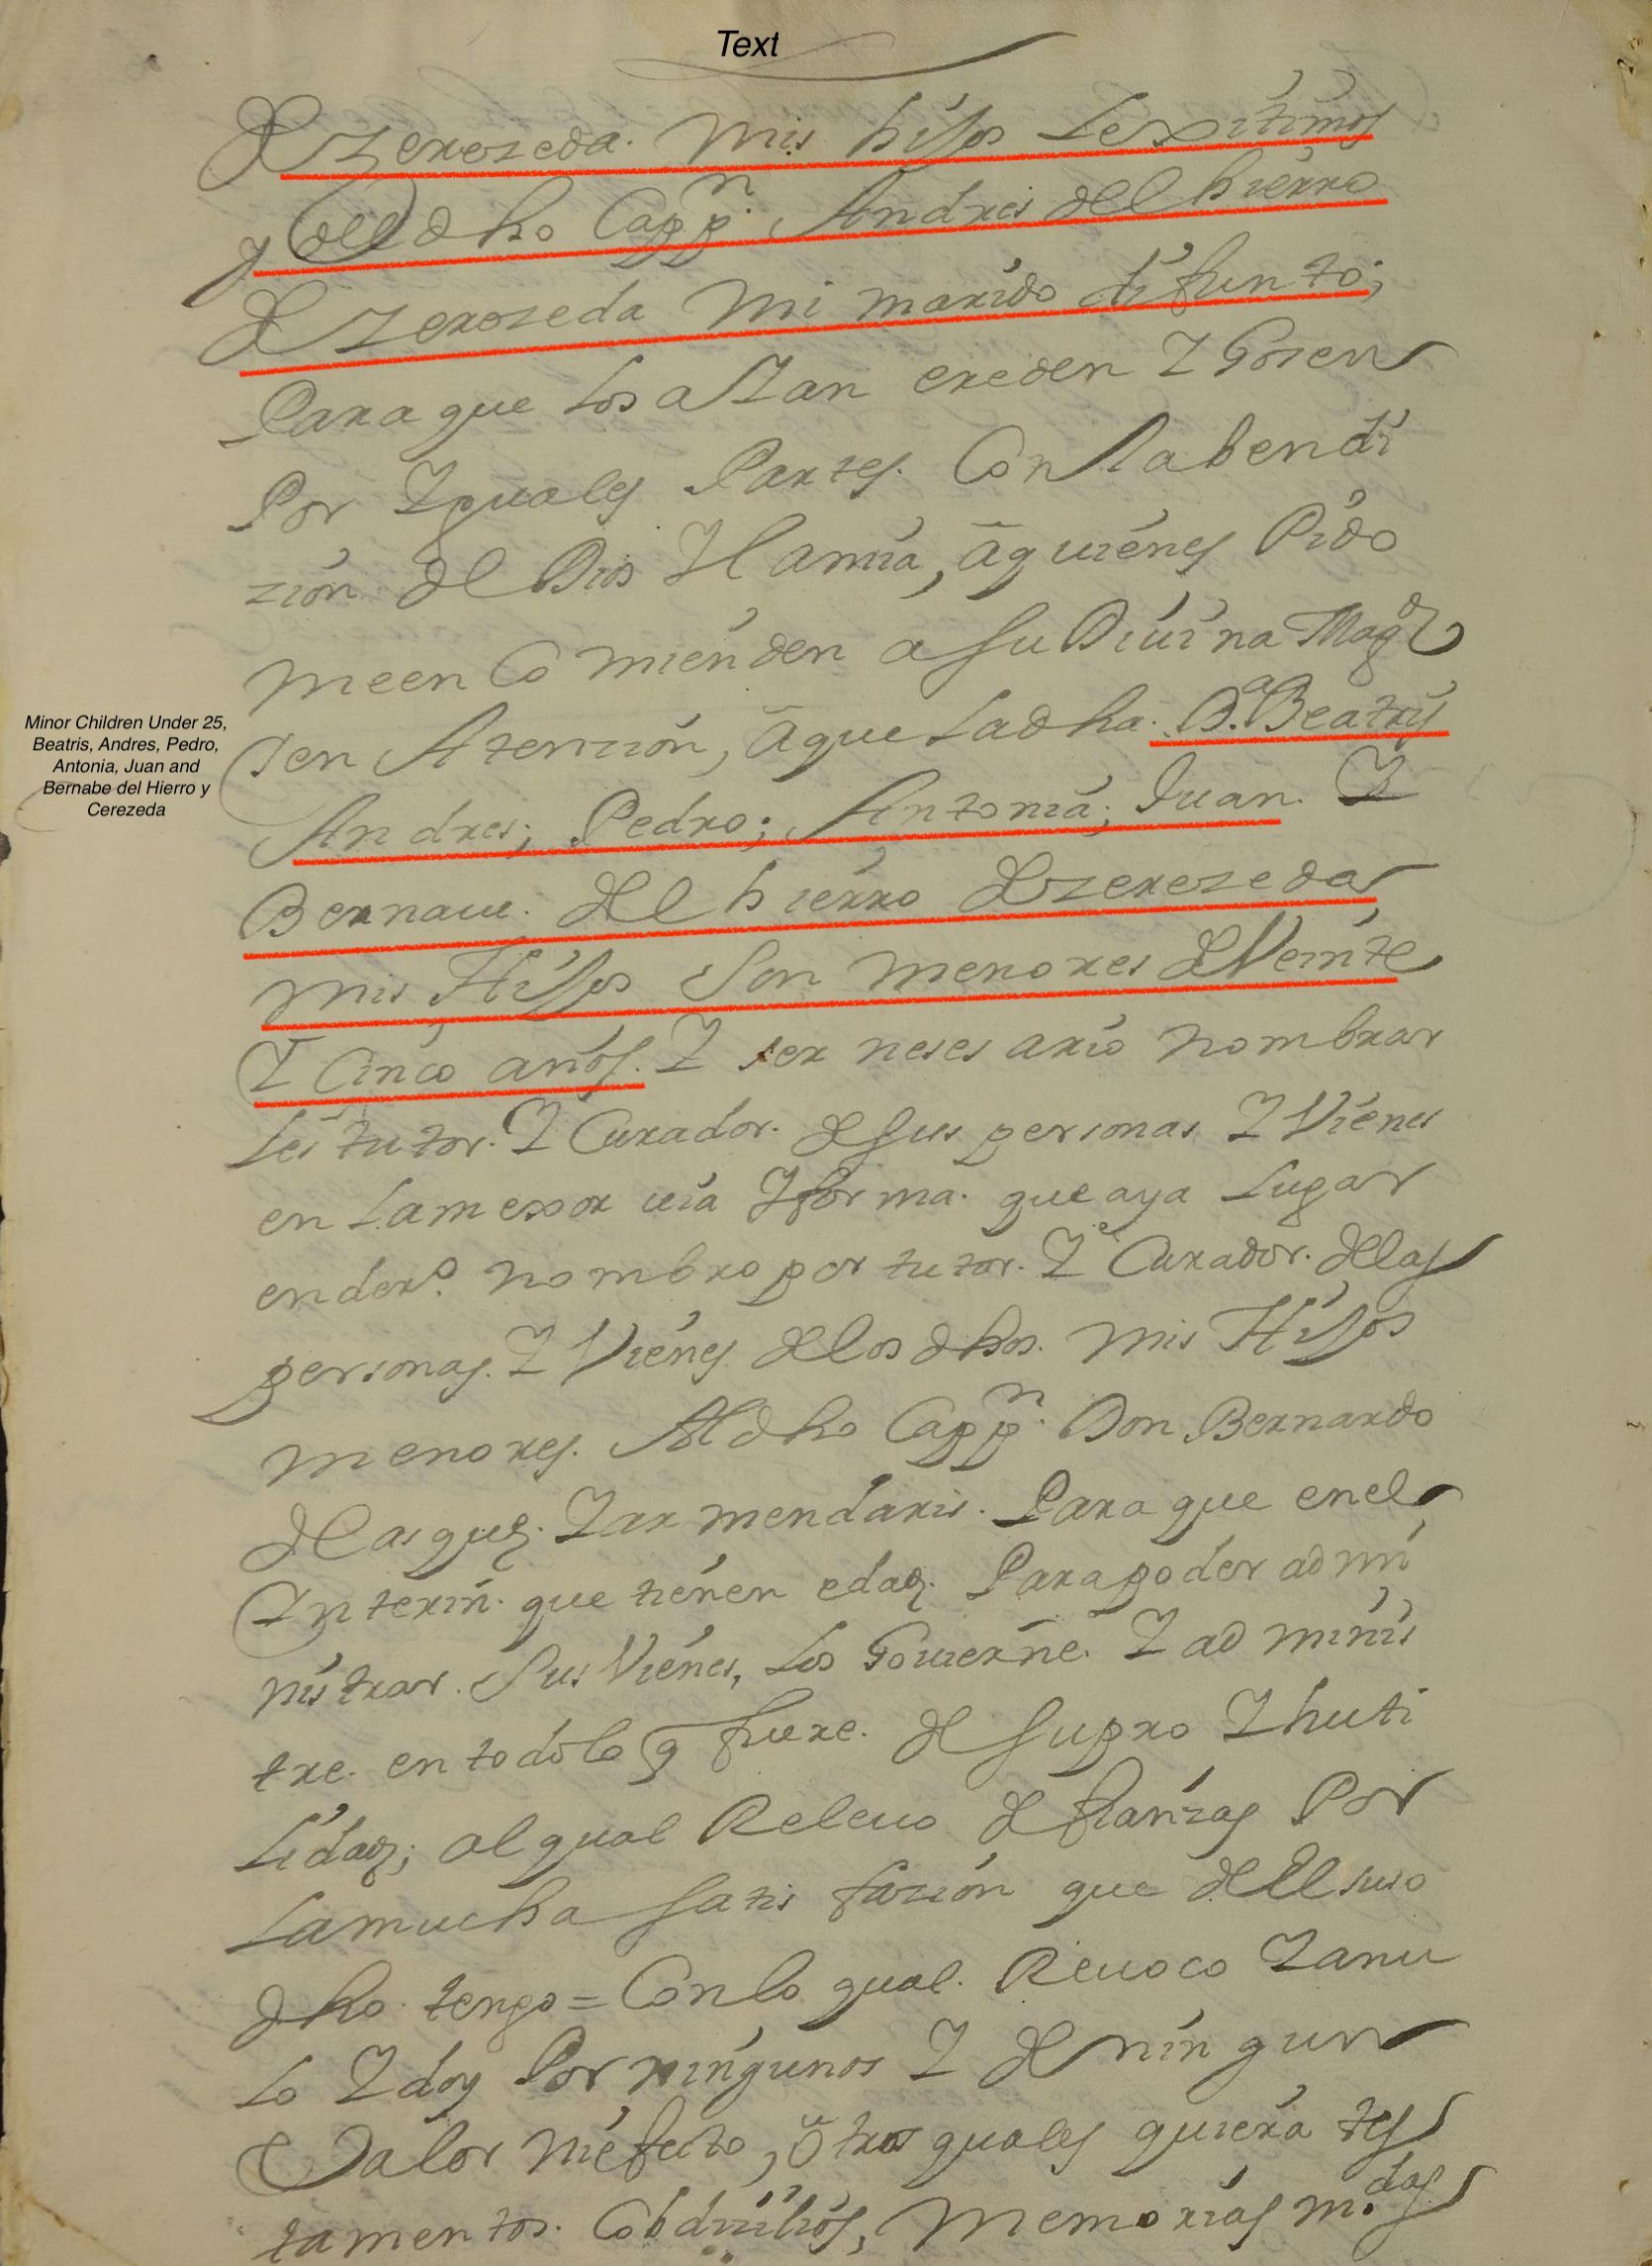 Text
& zerezeda. mis hijos Lexitimos
y del dho Capp.n Andres del hierro
& zerezeda mi marido difunto;
Para que Los aIan ereden I Gozen
Por Iguales Partes. Con la bendi
zión del Dios I la mia, ā quiénes Pido
me en Comiénden a su Diuina Mag.d
I en Atenzión, ā que La dha. D.a Beatris
Minor Children Under 25,
Beatris, Andres, Pedro,
Antonia, Juan and
Bernabe del Hierro y
Cerezeda
Andres; Pedro; Antonia; Juan. I
Bernaue. del hierro & zerezeda
mis Hijos son menores de Veinte
I Cinco años. I ser nesesario nombrar
Les tutor. I Curador. de sus personas I Viénes
en La mexor uia I forma. que aya Lugar
en der.o nombro por tutor. I Curador. de las
personas. I Viénes de los dhos. mis Hijos
menores. Al dho Capp.n Don Bernardo
I ar mendaris. Para que en el
Interin. que tiénen edad. Para poder admi
nistrar. Sus Viénes, Los Gouierne. I adminis
tre. en todo lo q fuere. de su pro I huti
Lidad; al qual Releuo de fianzas Por
La mucha satis fazión que del suso
dho. tengo = Con lo qual. Reuoco I anu
Lo I doy Por ningunos I de nin gun
Valor ni efecto, ŏ tros quales quiera tes
tamentos. Cobdizilios, Memorias m.das